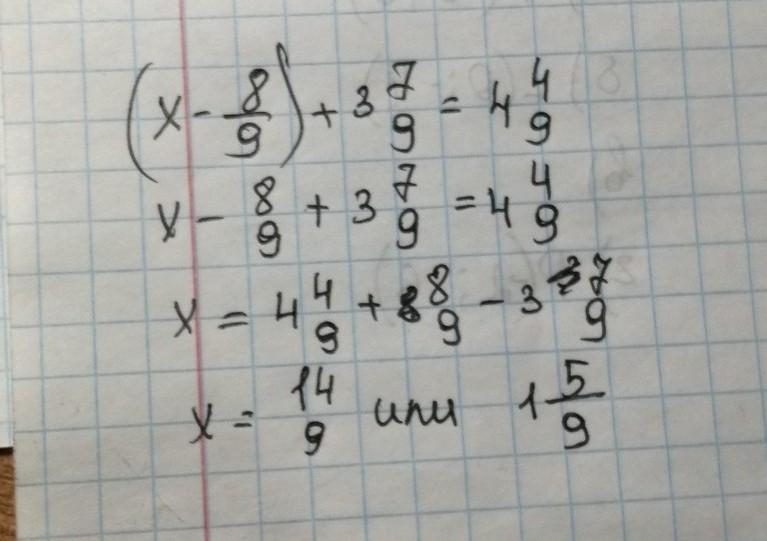 (x - 8/9) + 3 7/9 = 4 4/9
x - 8/9 + 3 7/9 = 4 4/9
x = 4 4/9 + 8/9 - 3 7/9
x = 14/9 или 1 5/9